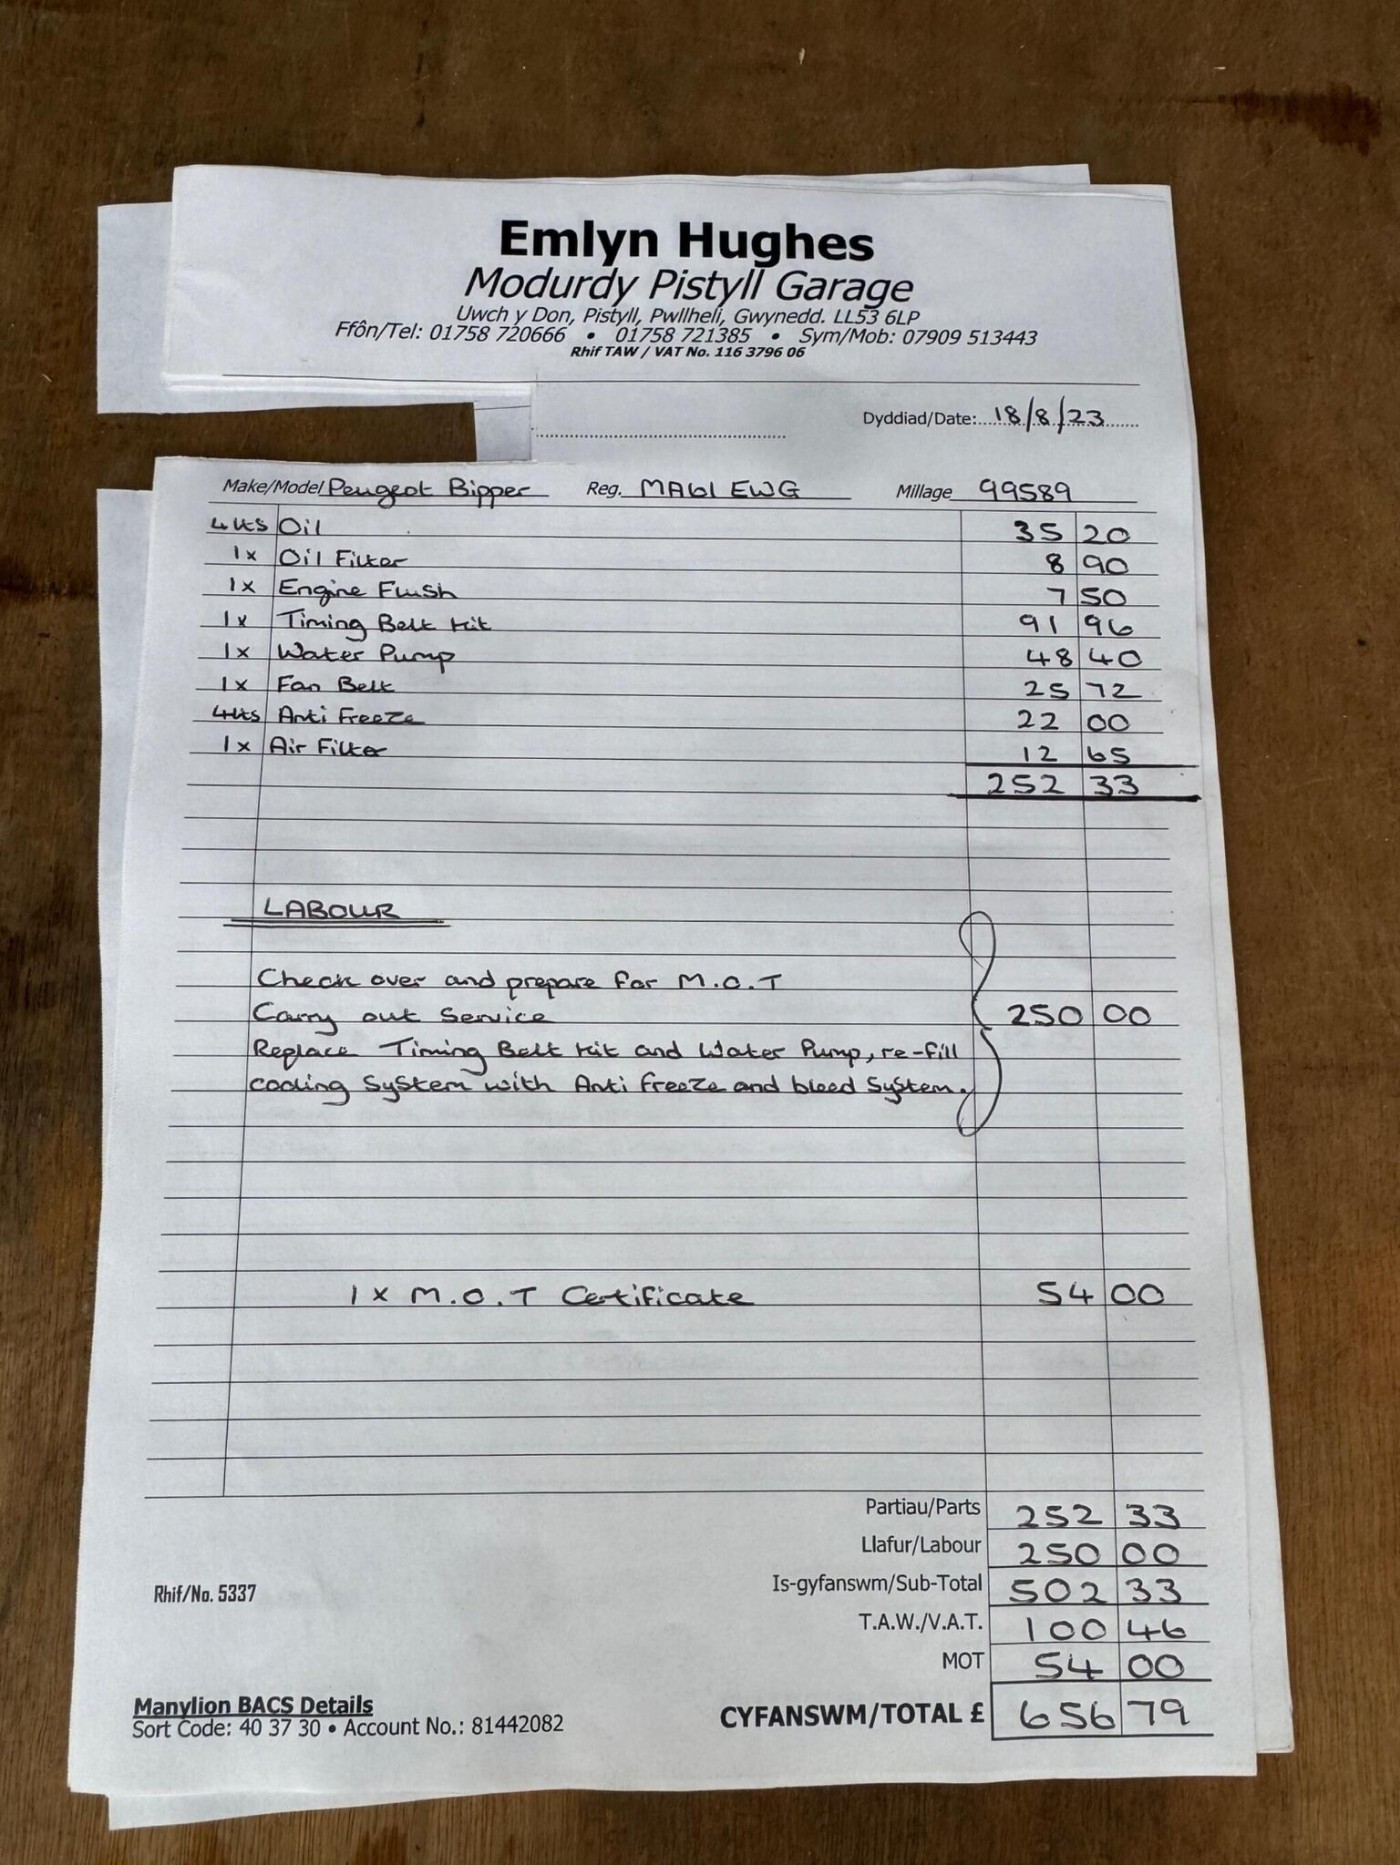 Emlyn Hughes
Modurdy Pistyll Garage
Uwch y Don, Pistyll, Pwllheli, Gwynedd. LL53 6LP
Ffôn/Tel: 01758 720666 • 01758 721385 • Sym/Mob: 07909 513443
Rhif TAW / VAT No. 116 3796 06
Dyddiad/Date: 18/8/23
Make/Model Peugeot Bipper Reg. MA61 EWG Millage 99589
4Lts Oil 35 20
1x Oil Filter 8 90
1x Engine Flush 7 50
1x Timing Belt Kit 91 96
1x Water Pump 48 40
1x Fan Belt 25 72
4Lts Anti Freeze 22 00
1x Air Filter 12 65
252 33
LABOUR
Check over and prepare for M.O.T
Carry out Service 250 00
Replace Timing Belt Kit and Water Pump, re-fill
cooling System with Anti freeze and bleed System.
1 x M.O.T Certificate 54 00
Partiau/Parts 252 33
Llafur/Labour 250 00
Is-gyfanswm/Sub-Total 502 33
Rhif/No. 5337
T.A.W./V.A.T. 100 46
MOT 54 00
Manylion BACS Details
CYFANSWM/TOTAL £ 656 79
Sort Code: 40 37 30 • Account No.: 81442082